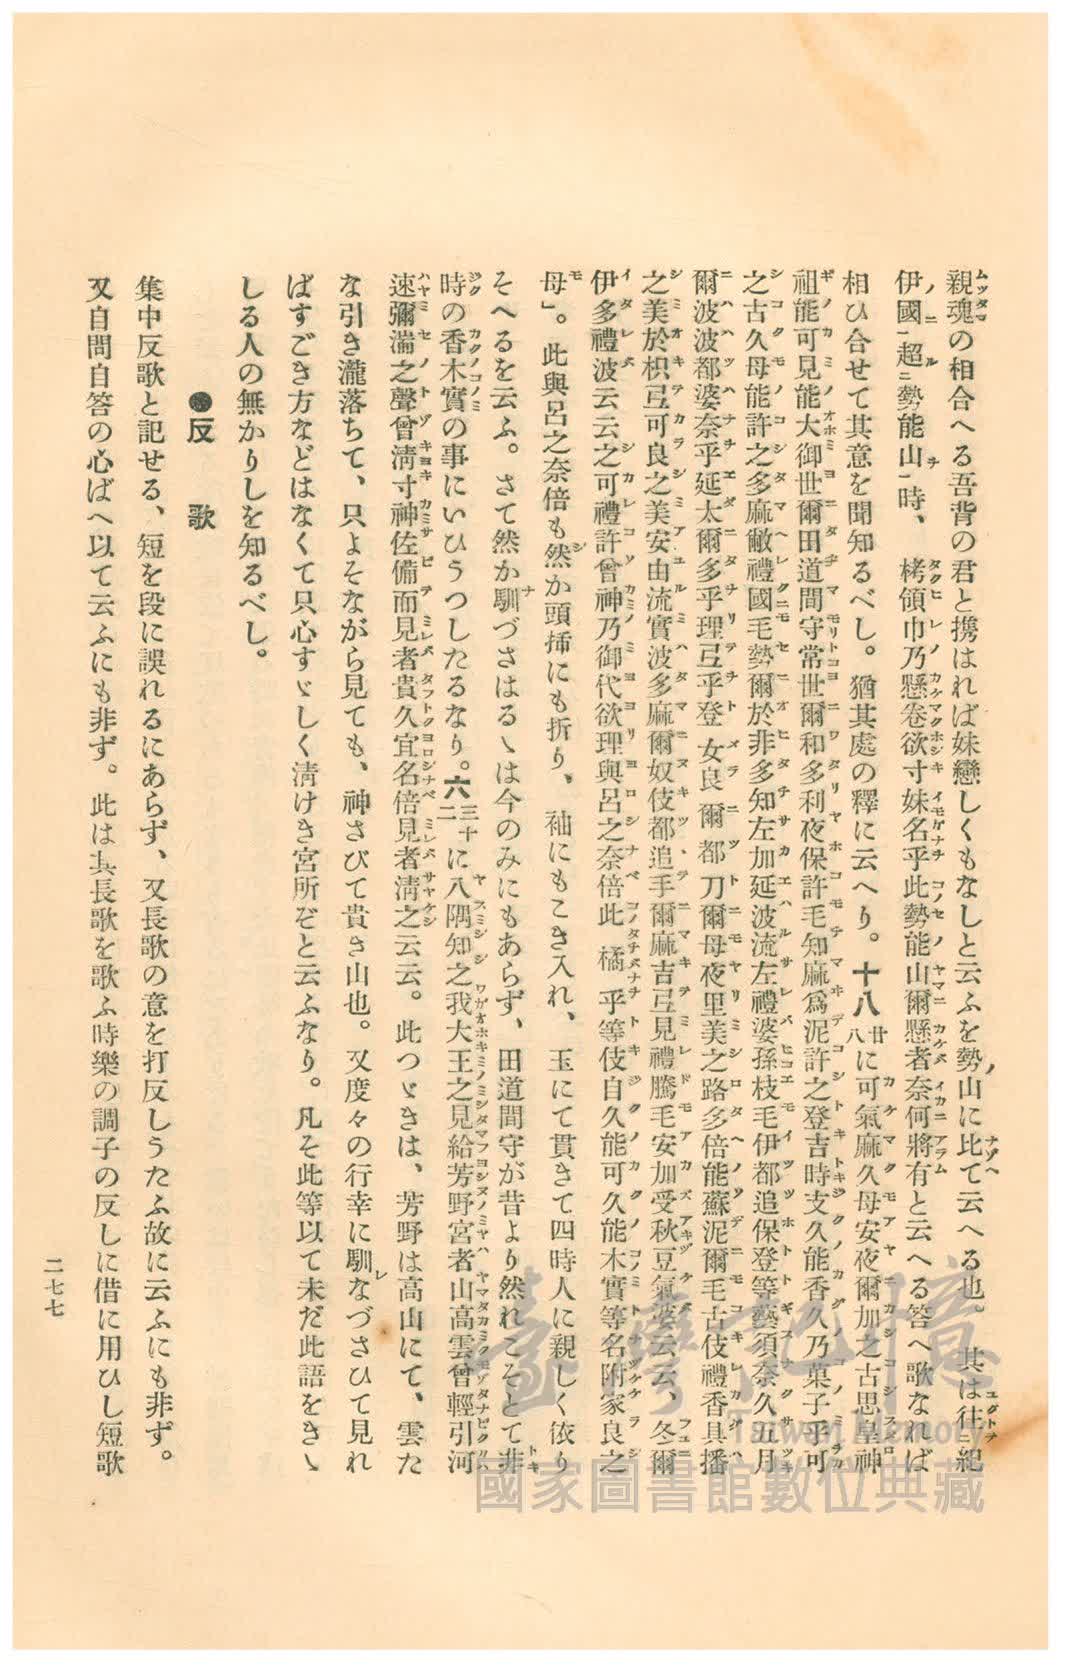 親魂の相合へる吾背の君と携はれば妹戀しくもなしと云ふを勢ノ山に比て云へる也。其は往ニ紀
伊國ニ超ニ勢能山ニ時、栲領巾乃懸卷欲寸妹名乎此勢能山爾懸者奈何將有と云へる答へ歌なれば
相ひ合せて其意を聞知るべし。猶其處の釋に云へり。十八廿八に可氣麻久母安夜爾加之古思皇神
祖能可見能大御世爾田道間守常世爾和多利夜保許毛知麻爲泥許之登吉時支久能香久乃菓子乎可
之古久母能許之多麻敝禮國毛勢爾於非多知左加延波流左禮婆孫枝毛伊都追保登等藝須奈久五月
爾波波都婆奈乎延太爾多乎理弖乎登女良爾都刀爾母夜里美之路多倍能蘇泥爾毛古伎禮香具播
之美於枳弖可良之美安由流實波多麻爾奴伎都追手爾麻吉弖見禮騰毛安加受秋豆氣婆云云、冬爾
伊多禮波云云之可禮許曾神乃御代欲理與呂之奈倍此橘乎等伎自久能可久能木實等名附家良之
母」。此與呂之奈倍も然か頭揷にも折り、袖にもこき入れ、玉にて貫きて四時人に親しく依り
そへるを云ふ。さて然か馴づさはるゝは今のみにもあらず、田道間守が昔より然れこそとて非
時の香木實の事にいひうつしたるなり。六三十二に八隅知之我大王之見給芳野宮者山高雲曾輕引河
速彌湍之聲曾淸寸神佐備而見者貴久宜名倍見者淸之云云。此つゞきは、芳野は高山にて、雲た
な引き瀧落ちて、只よそながら見ても、神さびて貴き山也。又度々の行幸に馴なづさひて見れ
ばすごき方などはなくて只心すゞしく淸けき宮所ぞと云ふなり。凡そ此等以て未だ此語をきゝ
しる人の無かりしを知るべし。
●反歌
集中反歌と記せる、短を段に誤れるにあらず、又長歌の意を打反しうたふ故に云ふにも非ず。
又自問自答の心ばへ以て云ふにも非ず。此は其長歌を歌ふ時樂の調子の反しに借に用ひし短歌
二七七
臺灣記憶
Taiwan Memory
國家圖書館數位典藏